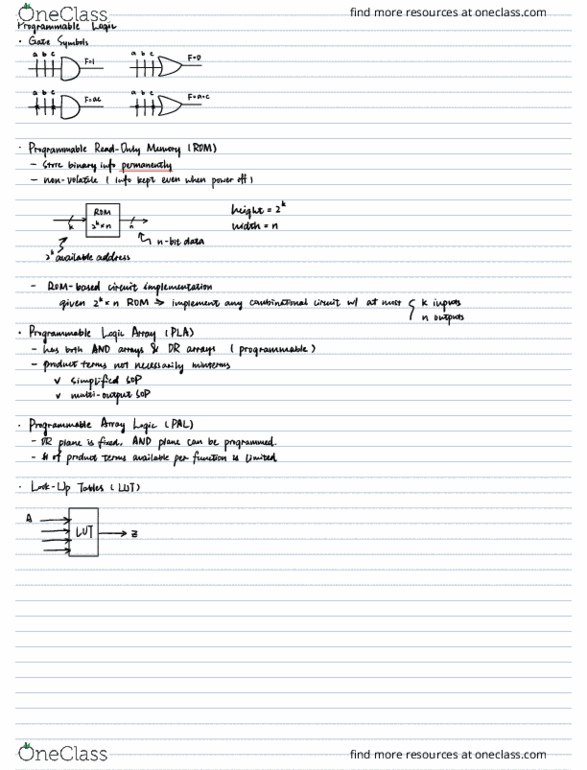 OneClass
find more resources at oneclass.com
Programmable Logic
· Gate Symbols
a b c F=1 a b c F=0
a b c F=ac a b c F=a+c
· Programmable Read-Only Memory (ROM)
- store binary info permanently
- non-volatile ( info kept even when power off )
ROM
2^k × n
k n
height = 2^k
width = n
n-bit data
2^k available address
- ROM-based circuit implementation
given 2^k × n ROM → implement any combinational circuit w/ at most { k inputs
n outputs
· Programmable Logic Array (PLA)
- has both AND arrays & OR arrays ( programmable )
- product terms not necessarily minterms
v simplified SOP
v multi-output SOP
· Programmable Array Logic (PAL)
- OR plane is fixed, AND plane can be programmed.
- # of product terms available per function is limited
· Look-Up Tables (LUT)
A LUT → z
OneClass
find more resources at oneclass.com